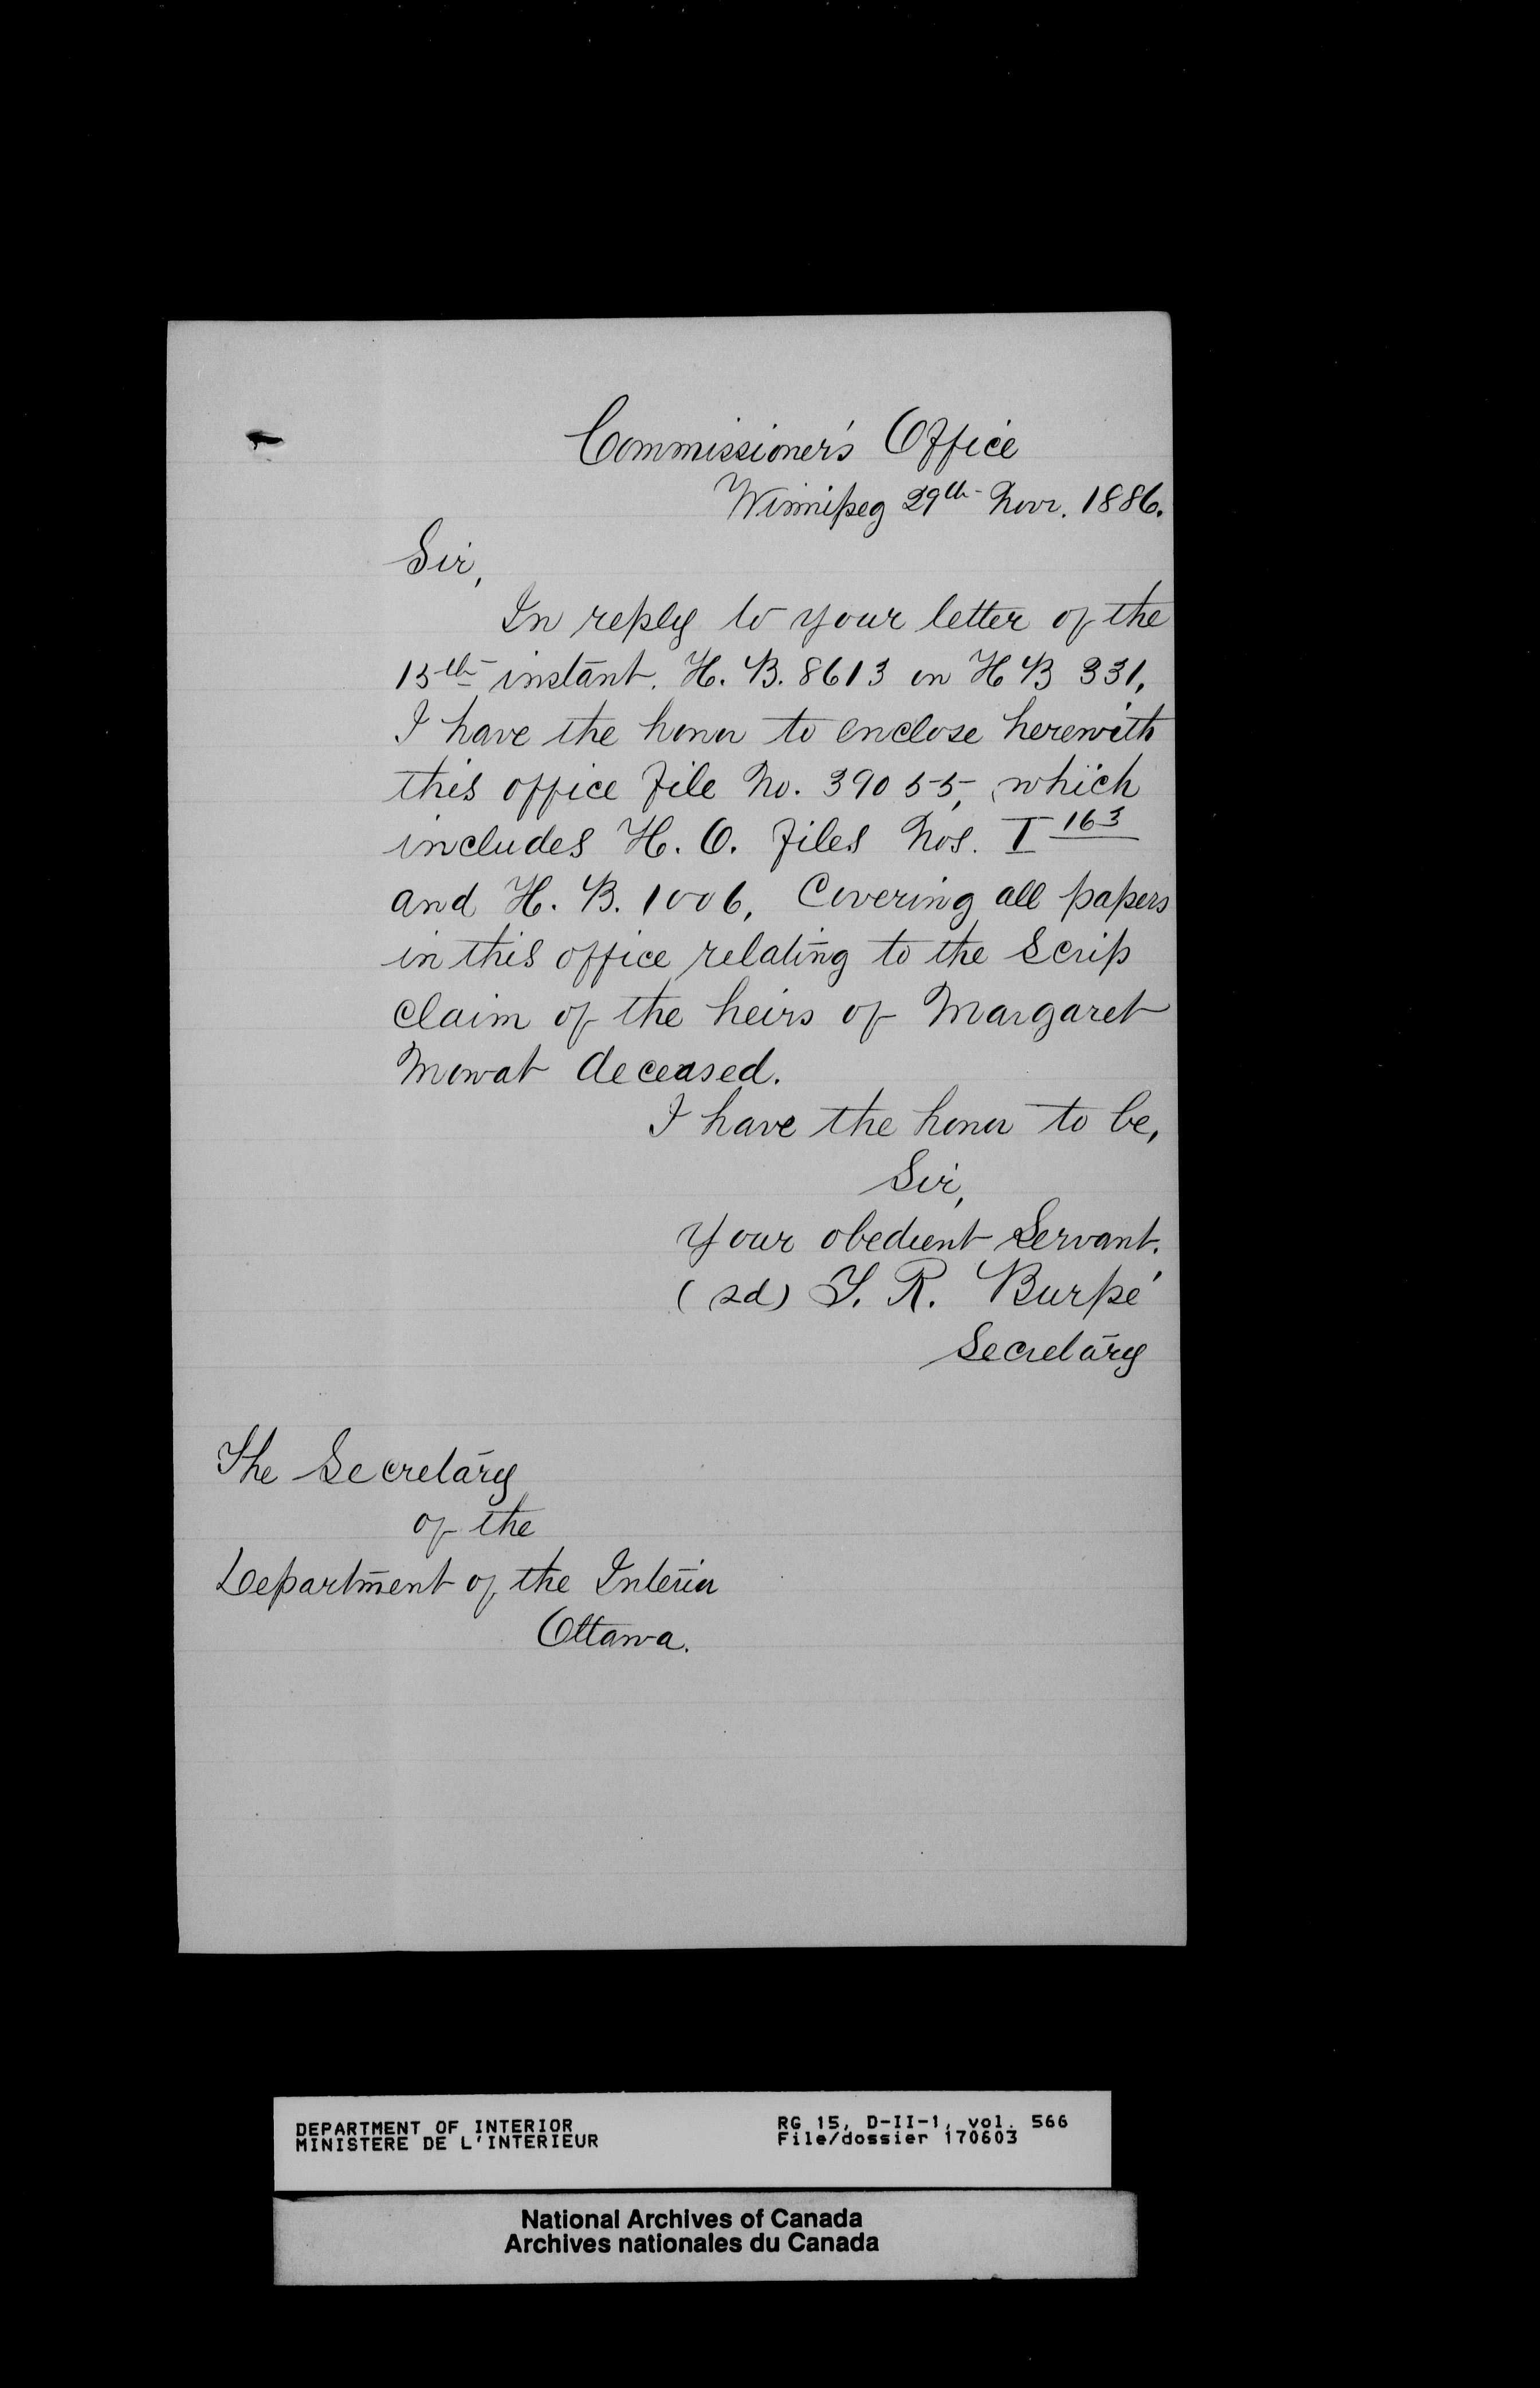 Commissioner's Office
Winnipeg 29th Novr. 1886.
Sir,
In reply to your letter of the
15th instant. H. B. 8613 on H B 331,
I have the honor to enclose herewith
this office file No. 39055, which
includes H. O. files Nos. I 163
and H. B. 1006, Covering all papers
in this office relating to the Scrip
Claim of the heirs of Margaret
Mowat deceased.
I have the honor to be,
Sir,
Your obedient Servant.
(sd) T. R. Burpé
Secretary
The Secretary
of the
Department of the Interior
Ottawa.
DEPARTMENT OF INTERIOR
MINISTERE DE L'INTERIEUR
RG 15, D-II-1, vol. 566
File/dossier 170603
National Archives of Canada
Archives nationales du Canada